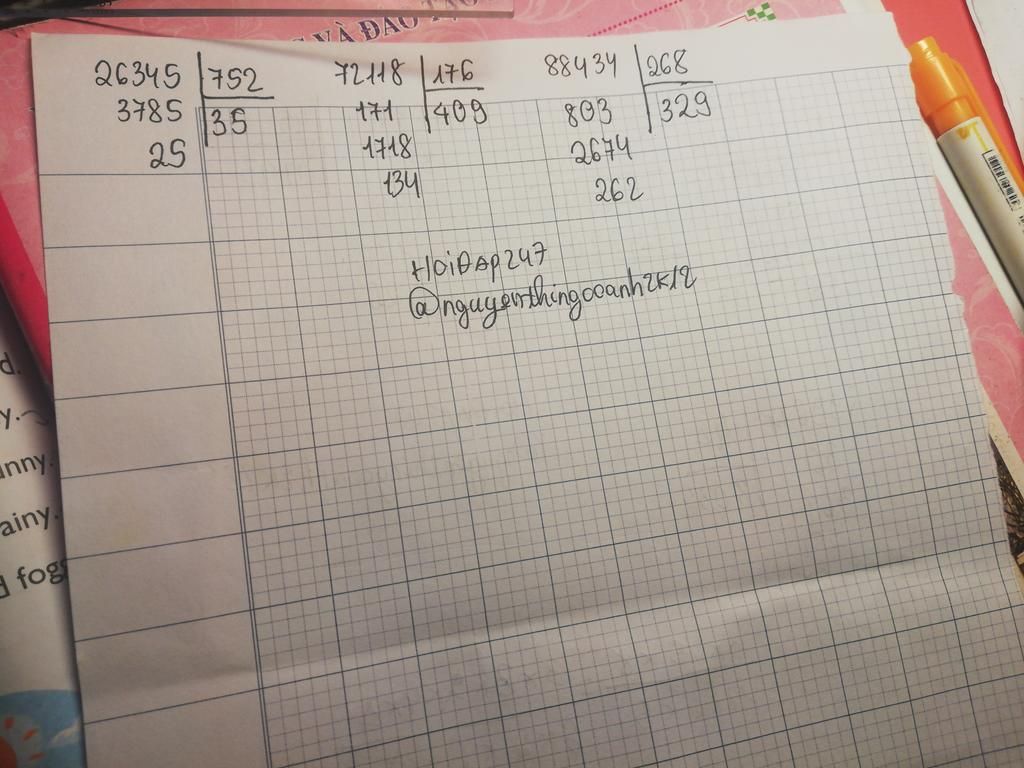 G VÀ ĐÀO TẠO
26345 752
3785 35
25
72118 176
171 409
1718
134
88434 268
803 329
2674
262
HOiĐAP247
@nguyenthingocanh2k12
d.
y.
nny.
ainy.
d fogg